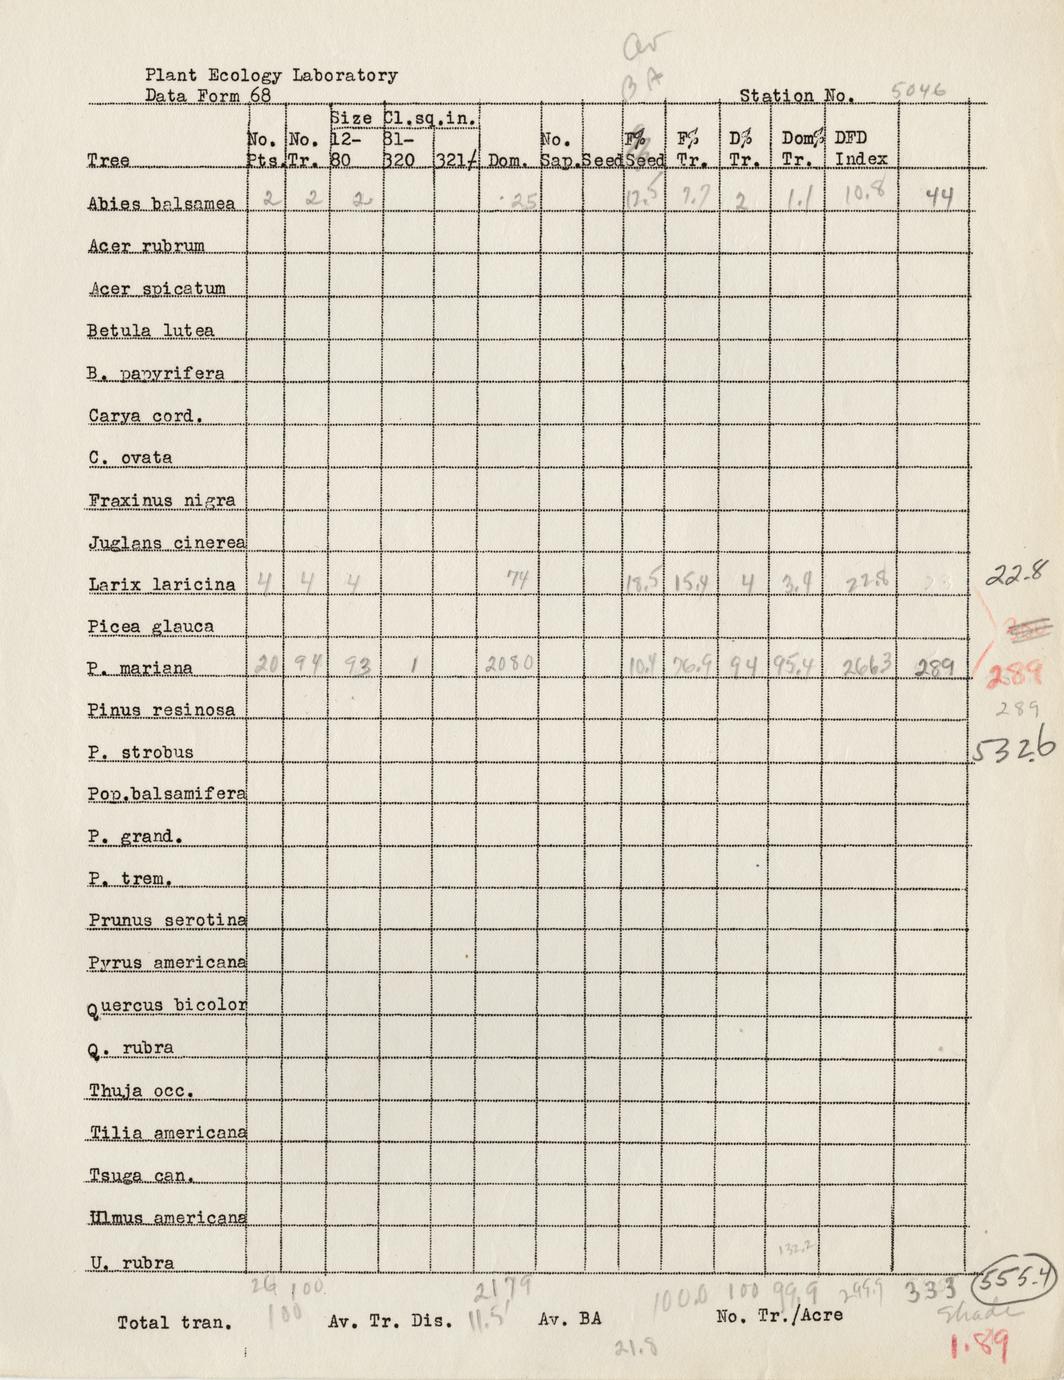 av
BA
Plant Ecology Laboratory
Data Form 68 Station No. 5046
Size Cl.sq.in.
No. No. 12- 81- No. F% F% D% Dom% DFD
Tree Pts. Tr. 80 320 321/ Dom. Sap. Seed Seed Tr. Tr. Tr. Index
Abies balsamea 2 2 2 .25 12.5 7.7 2 1.1 10.8 44
Acer rubrum
Acer spicatum
Betula lutea
B. papyrifera
Carya cord.
C. ovata
Fraxinus nigra
Juglans cinerea
Larix laricina 4 4 4 74 18.5 15.4 4 3.4 22.8 22.8
Picea glauca
P. mariana 20 94 93 1 2080 10.4 76.9 94 95.4 266.3 289 289
Pinus resinosa 289
P. strobus 532.6
Pop.balsamifera
P. grand.
P. trem.
Prunus serotina
Pyrus americana
Quercus bicolor
Q. rubra
Thuja occ.
Tilia americana
Tsuga can.
Ulmus americana
132.2
U. rubra
26 100 2179 100.0 100 99.9 299.9 333 555.4
Total tran. 100 Av. Tr. Dis. 11.5' Av. BA No. Tr./Acre Shade
21.8 1.89